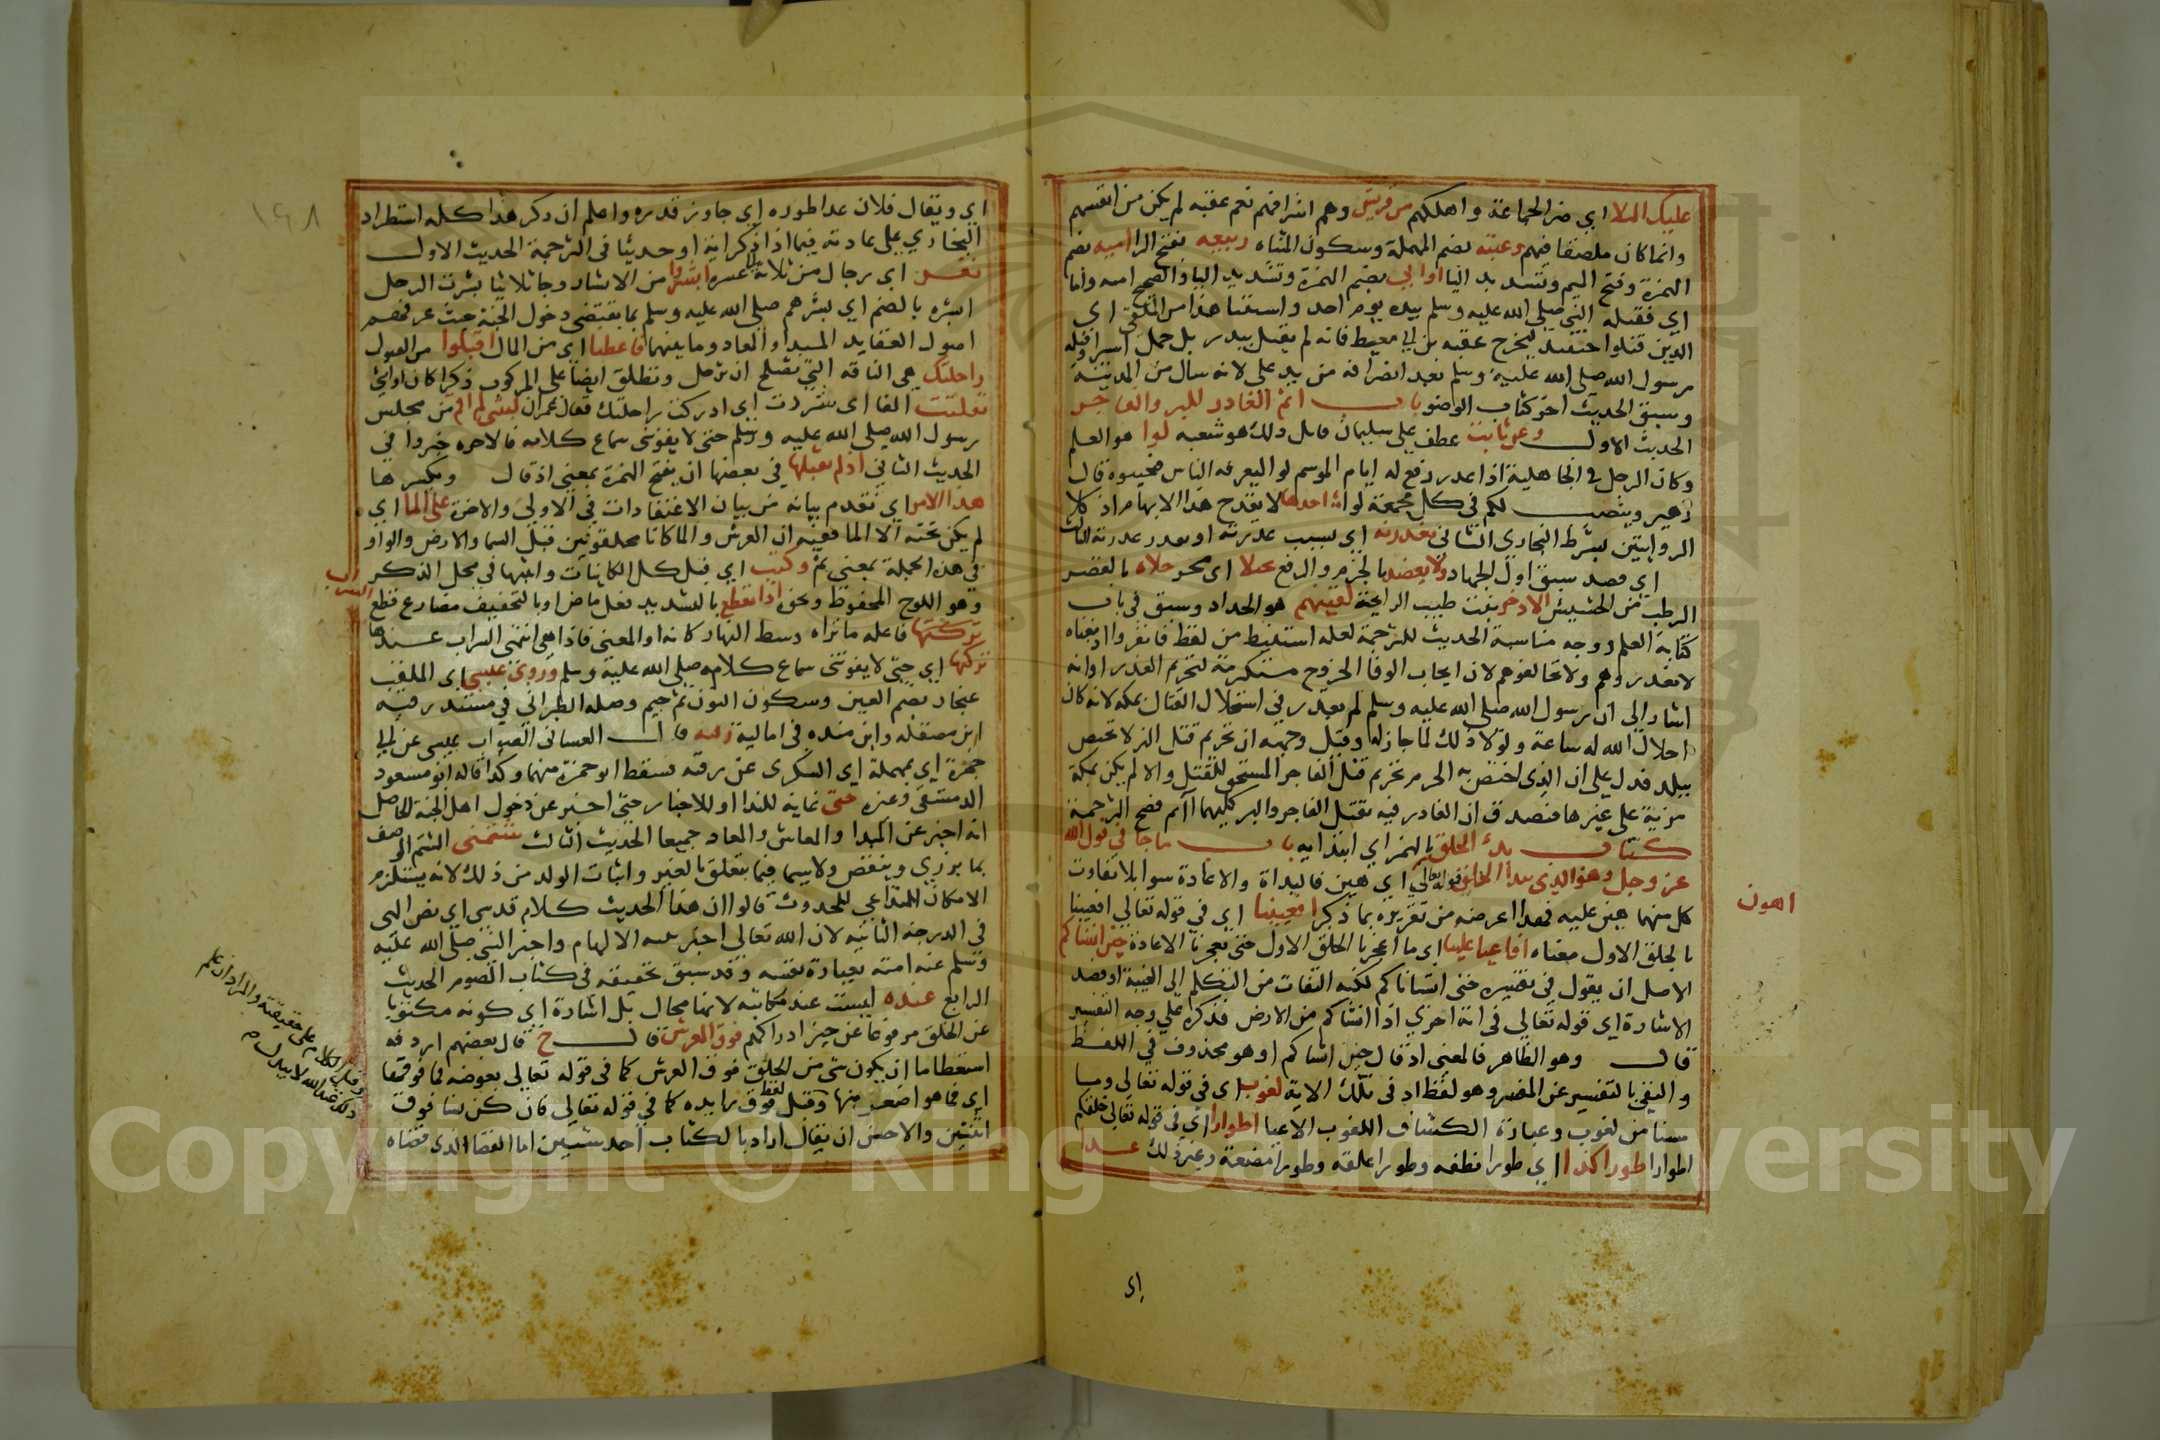 عليك الملا اي خذ الجماعة واهلكهم من قريش وهم اشرافهم نعم عقبه لم يكن من انفسهم
وانما كان ملصقا فيهم وعتبه بضم المهملة وسكون المثناه ربيعه بفتح الرا اميه بضم
الهمزة وفتح الميم وتشديد اليا او ابي بضم الهمزة وتشديد اليا والصحيح اميه واما
اي فقتله النبي صلي الله عليه وسلم بيده يوم احد واستثنا هذا من اي
الذين قتلوا حينئذ ليخرج عقبه بن ابي معيط فانه لم يقتل ببدر بل حمل اسيرا وقتله
رسول الله صلي الله عليه وسلم بعد انصرافه من بدر علي ثلاثة اميال من المدينة
وسبق الحديث اخر كتاب الوضو باب اثم الغادر للبر والفاجر
الحديث الاول وعن ثابت عطف علي سليمان قايل ذلك هو شعبه لوا هو العلم
وكان الرجل في الجاهلية اذا غدر رفع له ايام الموسم لوا ليعرفه الناس فيجتنبوه قال
زهير وينصب لكم في كل مجمعة لوا احدهما لا يقدح هذا الابهام اذ كلا
الروايتين بشرط البخاري الثاني بغدرته اي بسبب غدرته او بقدر غدرته الثالث
اي قصد سبق اول الجهاد ولا يعضد بالجزم والرفع خلاه بالقصر
الرطب من الحشيش الاذخر نبت طيب الرايحة لقينهم هو الحداد وسبق في باب
كتابة العلم ووجه مناسبة الحديث للترجمة لعله استنبط من لفظ فانفروا اذ معناه
لا تغدروهم ولا تخالفوهم لان ايجاب الوفا الخروج مستلزمة لتحريم الغدر او انه
اشار الي ان رسول الله صلي الله عليه وسلم لم يغدر في استحلال القتال بمكه لانه كان
احلال الله له ساعة ولولا ذلك لما جاز له وقيل وجهه ان تحريم قتل البر لا يختص
ببلد فدل علي ان الذي اختص به الحرم تحريم قتل الفاجر المستحق للقتل والا لم يكن بمكة
مزية علي غيرها فتصدق ان الغادر فيه بقتل الفاجر والبر كليهما اثم فصح الترجمة
كتاب بدء الخلق بالهمز اي ابتدايه باب ما جا في قول الله
عز وجل وهو الذي يبدا الخلق قوله تعالي اي هين فالبداة والاعادة سوا بلا تفاوت
كل منهما هين عليه فهذا غرضه من تفسيره بما ذكر افعيينا اي في قوله تعالي افعيينا
بالخلق الاول معناه افاعيا علينا اي ما اعجزنا الخلق الاول حتي يعجزنا الاعادة حين انشاكم
الاصل ان يقول في تفسيره حتي انشاناكم لكنه التفات من التكلم الي الغيبة او قصد
الاشارة اي قوله تعالي في اية اخري اذ انشاكم من الارض فذكره علي وجه التفسير
قال وهو الظاهر فالمعني اذ قال حين انشاكم او هو محذوف في اللفظ
واكتفي بالتفسير عن المفسر وهو لفظ اذ في تلك الاية لغوب اي في قوله تعالي وما
مسنا من لغوب وعبارة الكشاف اللغوب الاعيا اطوارا اي في قوله تعالي خلقكم
اطوارا طورا كذا اي طورا نطفه وطورا علقه وطورا مضغة وغير ذلك عدا
اهون
اي
اي ويقال فلان عدا طوره اي جاوز قدره واعلم ان ذكر هذا كله استطراد
البخاري علي عادته فيما اذا ذكر اية او حديثا في الترجمة الحديث الاول
نفر اي رجال من ثلاثة الي عشره ابشروا من الابشار وجا ثلاثيا بشرت الرجل
ابشره بالضم اي بشرهم صلي الله عليه وسلم بما يقتضي دخول الجنة حيث عرفهم
اصول العقايد المبدا والمعاد وما بينهما فاعطنا اي من المال اقبلوا من القبول
راحلتك هي الناقه التي تصلح ان ترحل وتطلق ايضا علي المركوب ذكرا كان او انثي
تفلتت الفا اي تشردت اي ادركت راحلتك فقال عمران ليتني لم اقم من مجلس
رسول الله صلي الله عليه وسلم حتي لا يفوتني سماع كلامه
الحديث الثاني اذ لم يقبلها في بعضها ان بفتح الهمزة بمعني اذ قال وبكسرها
هذا الامر اي تقدم بيانه من بيان الاعتقادات في الاولي والاخرة علي الما اي
لم يكن تحته الا الما ففيه ان العرش والما كانا مخلوقين قبل السما والارض والواو
في هذه الجملة بمعني ثم وكتب اي قبل كل الكاينات واثبتها في محل الذكر
وهو اللوح المحفوظ ونحن اذا تقطع بالتشديد فعل ماض او بالتخفيف مضارع قطع السراب
فاعله ما تراه وسط النهار كانه ما والمعني فاذا هي انتهي السراب عندها
تركتها اي حتي لا يفوتني سماع كلامه صلي الله عليه وسلم وروي عيسي اي الملقب
غنجار بضم الغين وسكون النون ثم جيم وصله الطبراني في مسند رقبه
ابن مصقله وابن منده في اماليه رقبه قال الغساني الصواب عيسي عن ابي
حمزة اي بمهملة اي السكري عن رقبه فسقط ابو حمزة منهما وكذا قاله ابو مسعود
الدمشقي وغيره حتي غاية للندا او للاخبار حتي اخبر عن دخول اهل الجنة الحاصل
انه اخبر عن المبدا والمعاش والمعاد جميعا الحديث الثالث شتمني الشتم الوصف
بما يزري وينقص ولا سيما فيما يتعلق بالغير واثبات الولد من ذلك لانه يستلزم
الامكان المتداعي للحدوث قالوا ان هذا الحديث كلام قدسي اي نص الهي
في الدرجة الثانيه لان الله تعالي اخبر نبيه الالهام واخبر النبي صلي الله عليه
وسلم عنه امته بعبارة نفسه وقد سبق تحقيقه في كتاب الصوم الحديث
الرابع عنده ليست عند مكانيه لانها محال بل اشارة اي كونه مكنونا
عن الخلق مرفوعا عن حيز ادراكهم فوق العرش قال خ قال بعضهم اردفه
استعظاما ان يكون شي من الخلق فوق العرش كما في قوله تعالي بعوضه فما فوقها
اي فما هو اصغر منها وقيل لفظ فوق زايده كما في قوله تعالي فان كن نسا فوق
اثنتين والاحسن ان يقال اراد بالكتاب احد شيين اما القضا الذي قضاه
١٩٨
Copyright © King Saud University